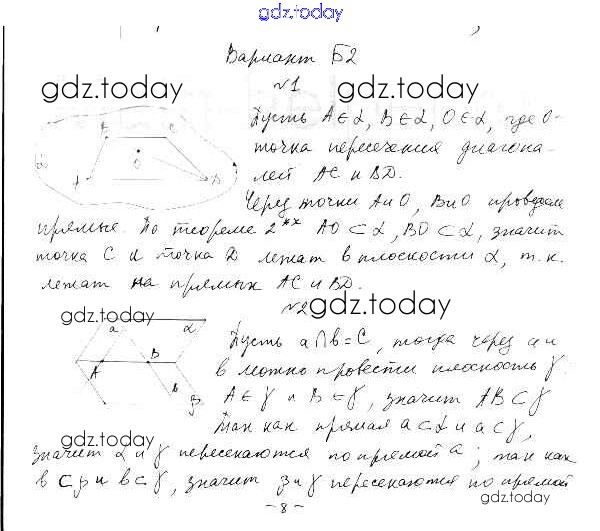 gdz.today
Вариант Б2
№1
gdz.today
gdz.today
Пусть A∈α, B∈α, O∈α, где O-
точка пересечения диагона-
лей AC и BD.
Через точки A и O, B и O проведем
прямые. По теореме 2** AO ⊂ α, BO ⊂ α, значит
точка C и точка D лежат в плоскости α, т.к.
лежат на прямых AC и BD.
α B C O A D
№2
gdz.today
gdz.today
a α A B b β
Пусть a∩b=C, тогда через a и
b можно провести плоскость γ.
A∈γ и B∈γ, значит AB⊂γ
Так как прямая a⊂α и a⊂γ,
gdz.today
значит α и γ пересекаются по прямой a; так как
b⊂β и b⊂γ, значит β и γ пересекаются по прямой
gdz.today
-8-